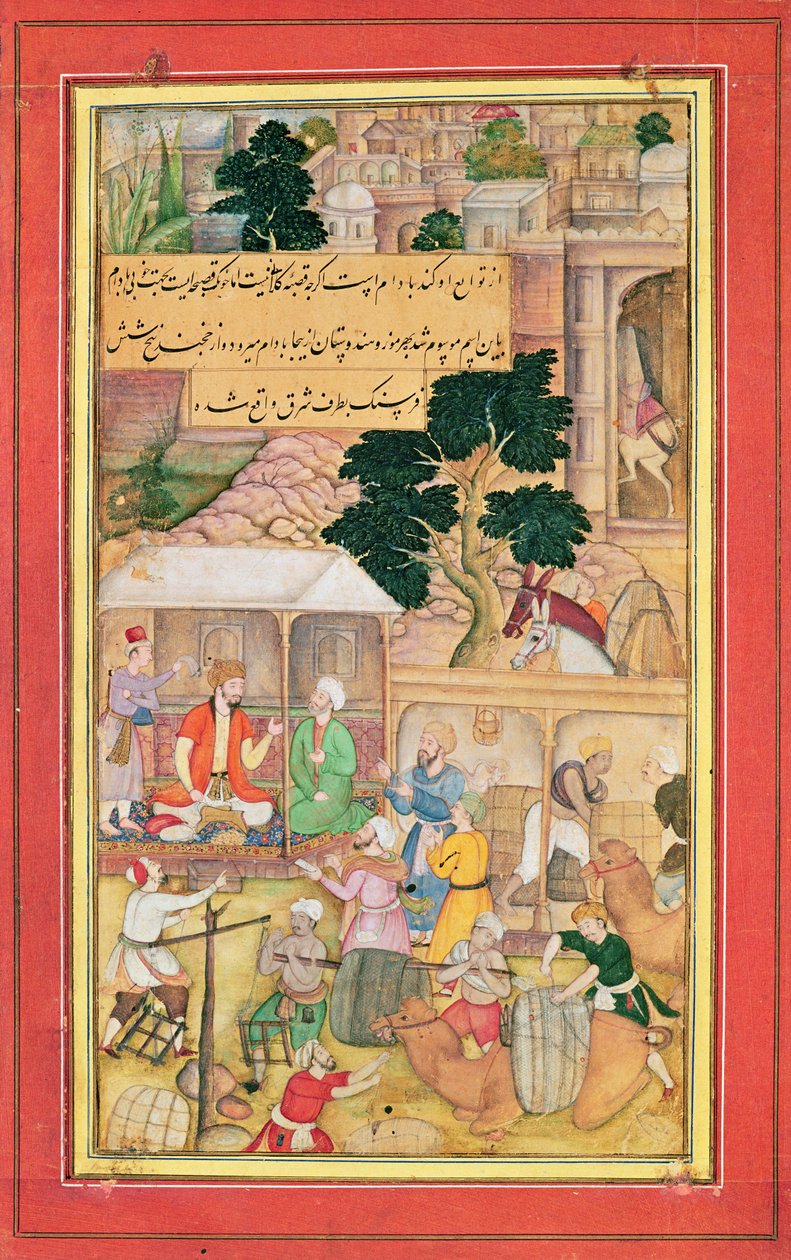 از توابع او کند بادام است اگرچه قصبه کلان نیست اما خوبک قصبچه ایست بجهت خوبی بادام
باین اسم موسوم شد بهرموز و هندوستان ازینجا بادام میرود و از خجند پنج شش
فرسنک بطرف شرق واقع شده